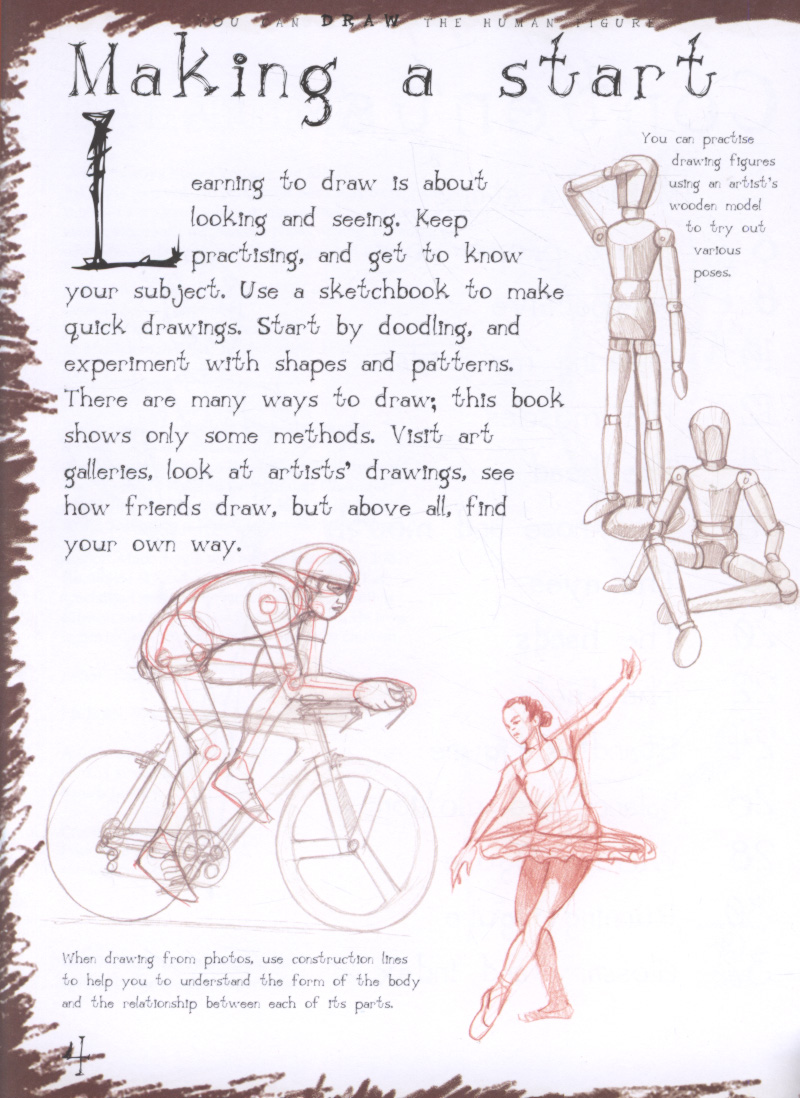 YOU CAN DRAW THE HUMAN FIGURE
Making a start
You can practise
drawing figures
using an artist's
wooden model
to try out
various
poses.
Learning to draw is about
looking and seeing. Keep
practising, and get to know
your subject. Use a sketchbook to make
quick drawings. Start by doodling, and
experiment with shapes and patterns.
There are many ways to draw; this book
shows only some methods. Visit art
galleries, look at artists' drawings, see
how friends draw, but above all, find
your own way.
When drawing from photos, use construction lines
to help you to understand the form of the body
and the relationship between each of its parts.
4